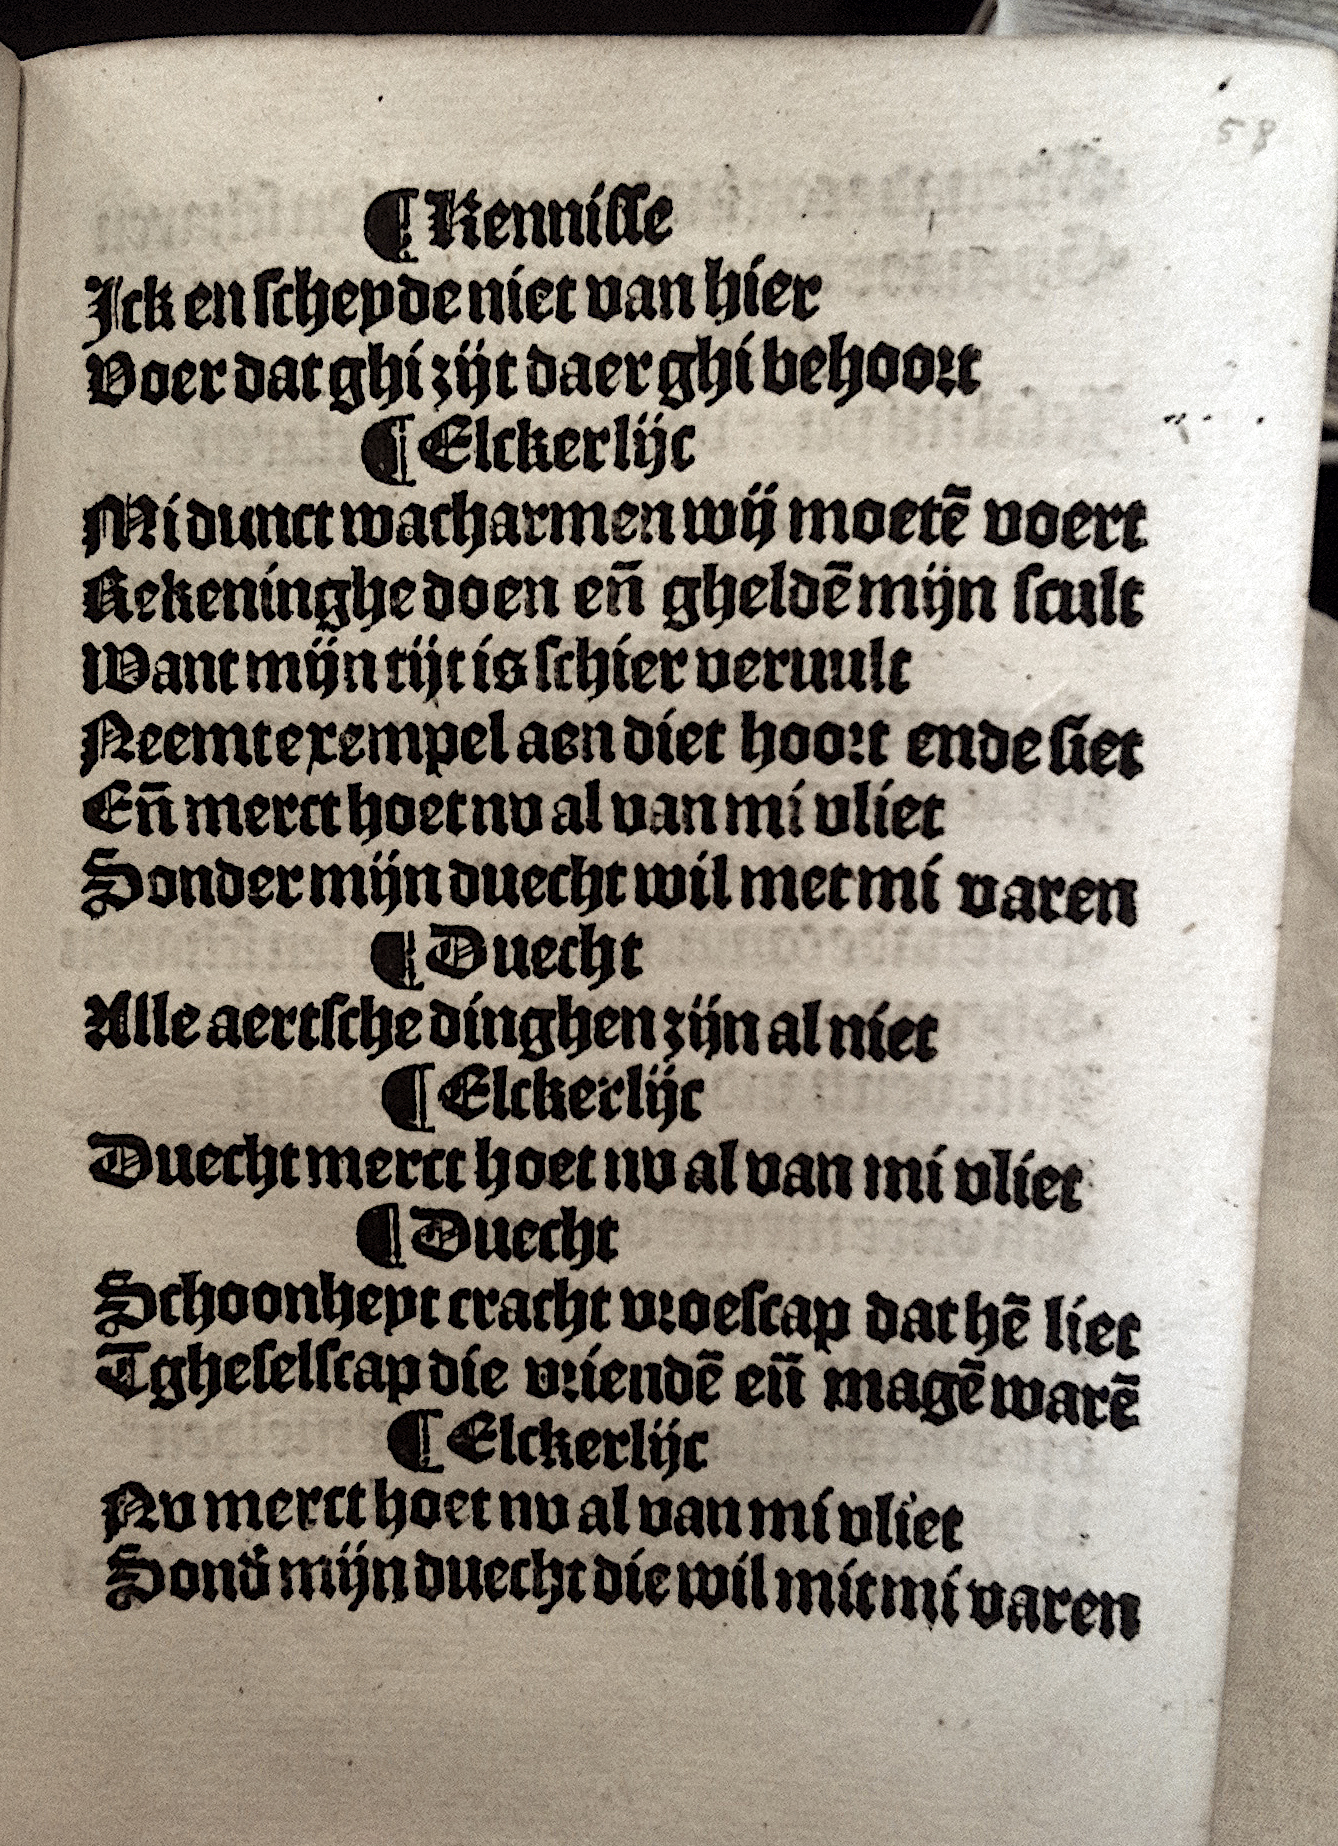 58
¶ Kennisse
Ick en scheyde niet van hier
Voer dat ghi zijt daer ghi behoort
¶ Elckerlijc
Mi dunct wacharmen wij moetē voert
Rekeninghe doen en̄ gheldē mijn scult
Want mijn tijt is schier veruult
Neemt exempel aen diet hoort ende siet
En̄ merct hoet nv al van mi vliet
Sonder mijn duecht wil met mi varen
¶ Duecht
Alle aertsche dinghen zijn al niet
¶ Elckerlijc
Duecht merct hoet nv al van mi vliet
¶ Duecht
Schoonheyt cracht vroescap dat hē liet
Tgheselscap die vriendē en̄ magē warē
¶ Elckerlijc
Nv merct hoet nv al van mi vliet
Sond̄ mijn duecht die wil mit mi varen